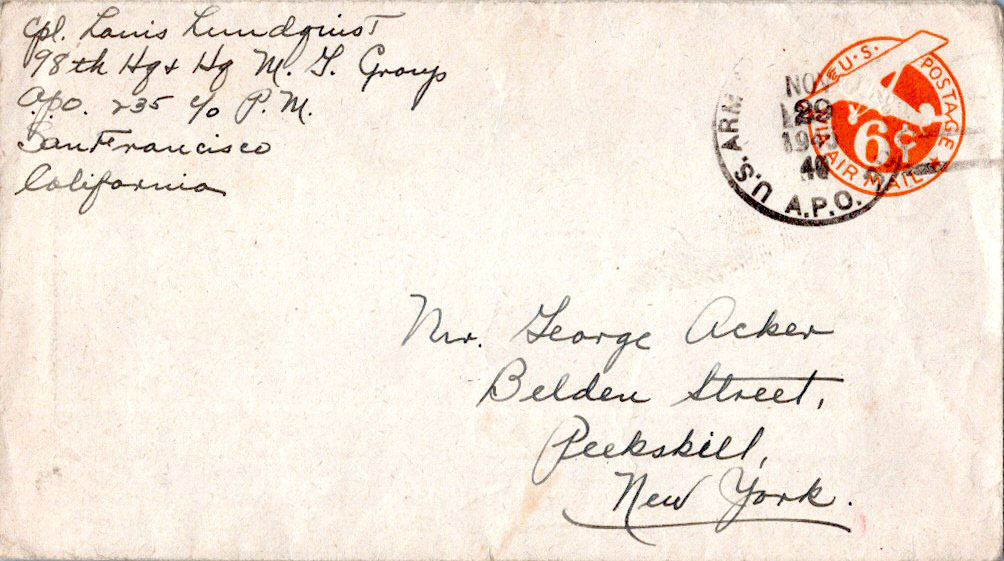 Cpl. Louis Lundquist
98th Hq & Hq M. G. Group
A.P.O. 235 c/o P.M.
San Francisco
California
U.S. POSTAGE
6¢
VIA AIR MAIL
U.S. ARMY
NOV
29
194
A.P.O.
Mr. George Acker
Belden Street,
Peekskill,
New York.